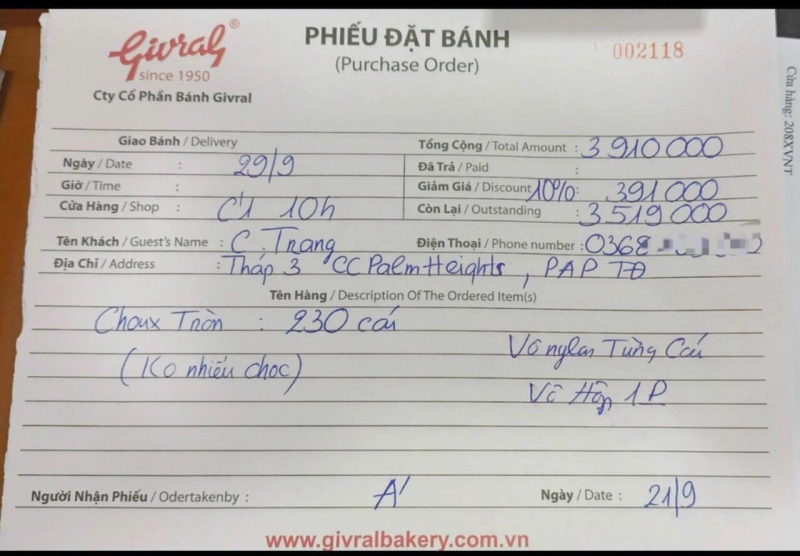 Givral®
since 1950
Cty Cổ Phần Bánh Givral
PHIẾU ĐẶT BÁNH
(Purchase Order)
002118
Cửa hàng: 208XVNT
Giao Bánh / Delivery
Ngày / Date : 29/9
Giờ / Time :
Cửa Hàng / Shop : C'1 10h
Tổng Cộng / Total Amount : 3 910 000
Đã Trả / Paid :
Giảm Giá / Discount 10% : 391 000
Còn Lại / Outstanding : 3 519 000
Tên Khách / Guest's Name : C. Trang Điện Thoại / Phone number : 0368
Địa Chỉ / Address : Tháp 3 CC Palm Heights, PAP TĐ
Tên Hàng / Description Of The Ordered Item(s)
Choux Tròn : 230 cái
(Ko nhiếu choc)
Vô nylan Từng Cái
Vô Hộp 1 P
Người Nhận Phiếu / Odertakenby : A' Ngày / Date : 21/9
www.givralbakery.com.vn